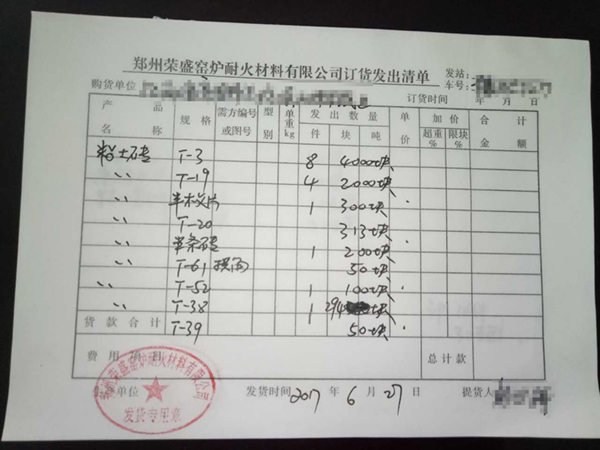 郑州荣盛窑炉耐火材料有限公司订货发出清单
发站:
车号:
购货单位
订货时间 年 月 日
产品名称 规格 需方编号或图号 型别 单重kg 发出数量 件 块 吨 单价 加价 超重% 限块% 合计金额
粘土砖 T-3 8 4000块
〃 T-19 4 2000块
〃 半枚片 1 300块
〃 T-20 313块
〃 半条砖 1 200块
〃 T-61 50块
〃 T-52 1 100块
〃 T-38 1 294块
T-39 50块
货款合计
费用 总计款
单位 发货时间 2017 年 6 月 27 日 提货人
郑州荣盛窑炉耐火材料有限公司
发货专用章